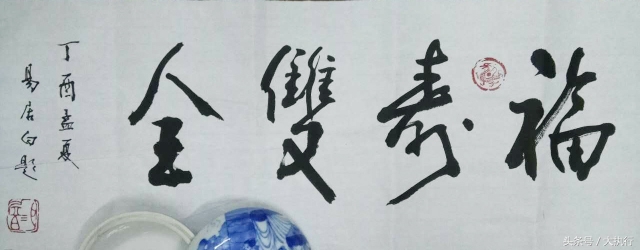 福壽雙全
丁酉孟夏
易居白题
头条号 / 大执行